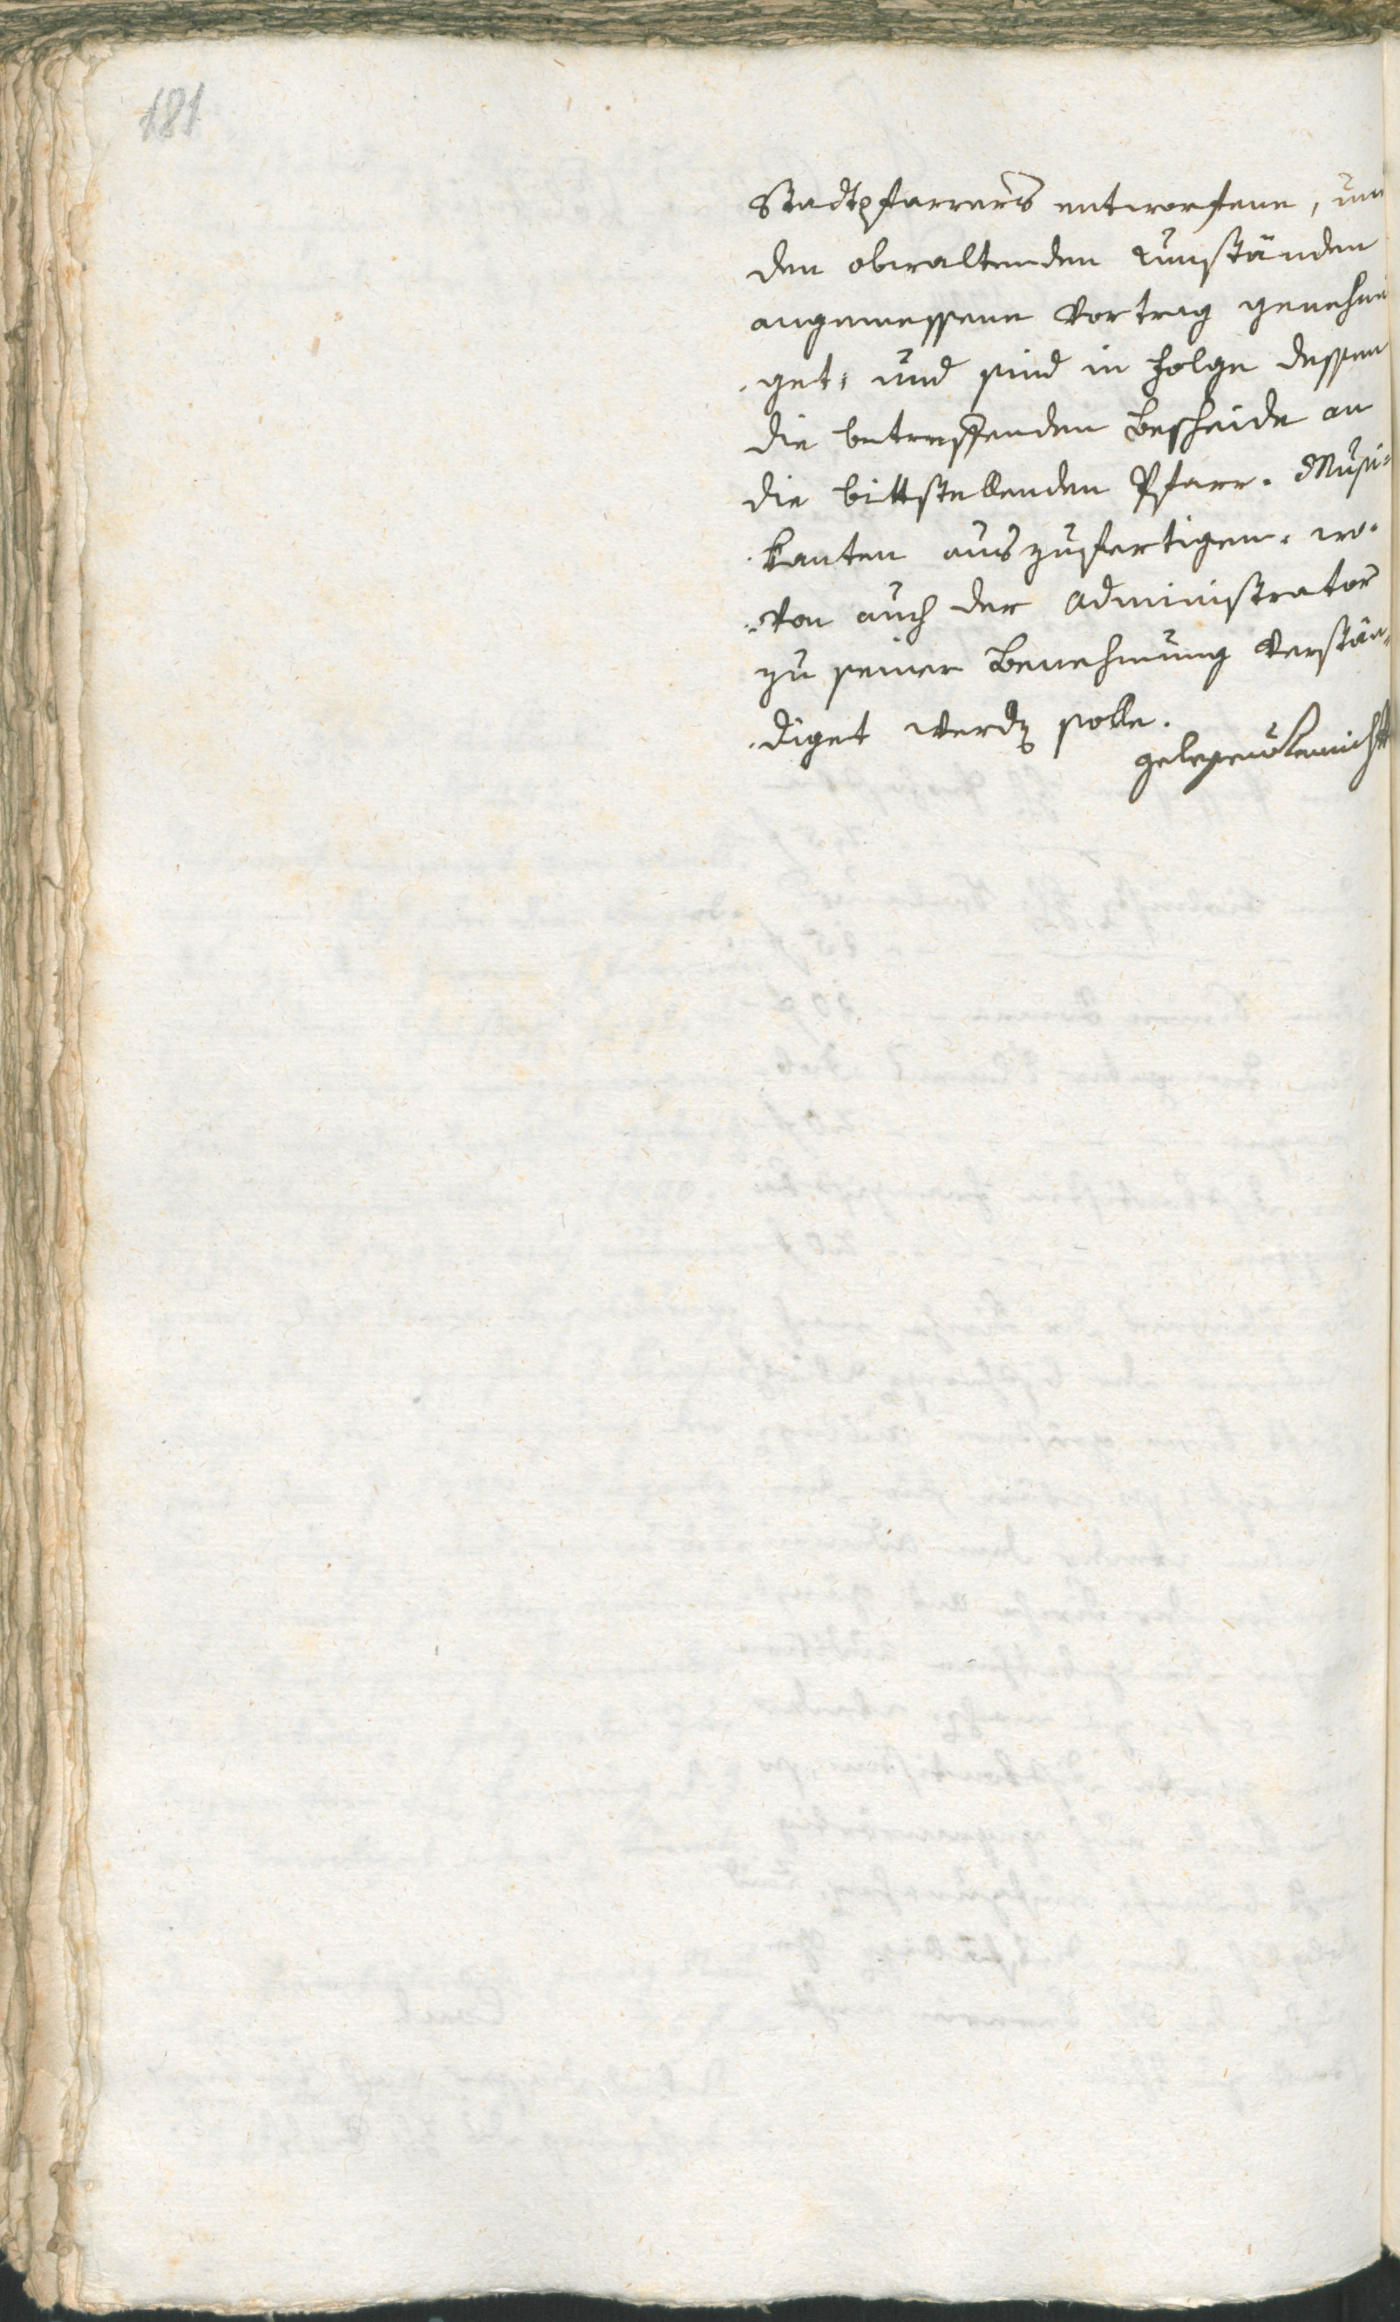 181
Stadtpfarrers entworfene, und
den obwaltenden umständen
angemessene Vortrag genehmi
get, und sind in folge dessen
die betreffenden Bescheide an
die bittstellenden Pfarr-Musi-
kanten auszufertigen, wo-
von auch der Administrator
zu seiner Benehmung Verstän-
diget werden solle.
gelesen